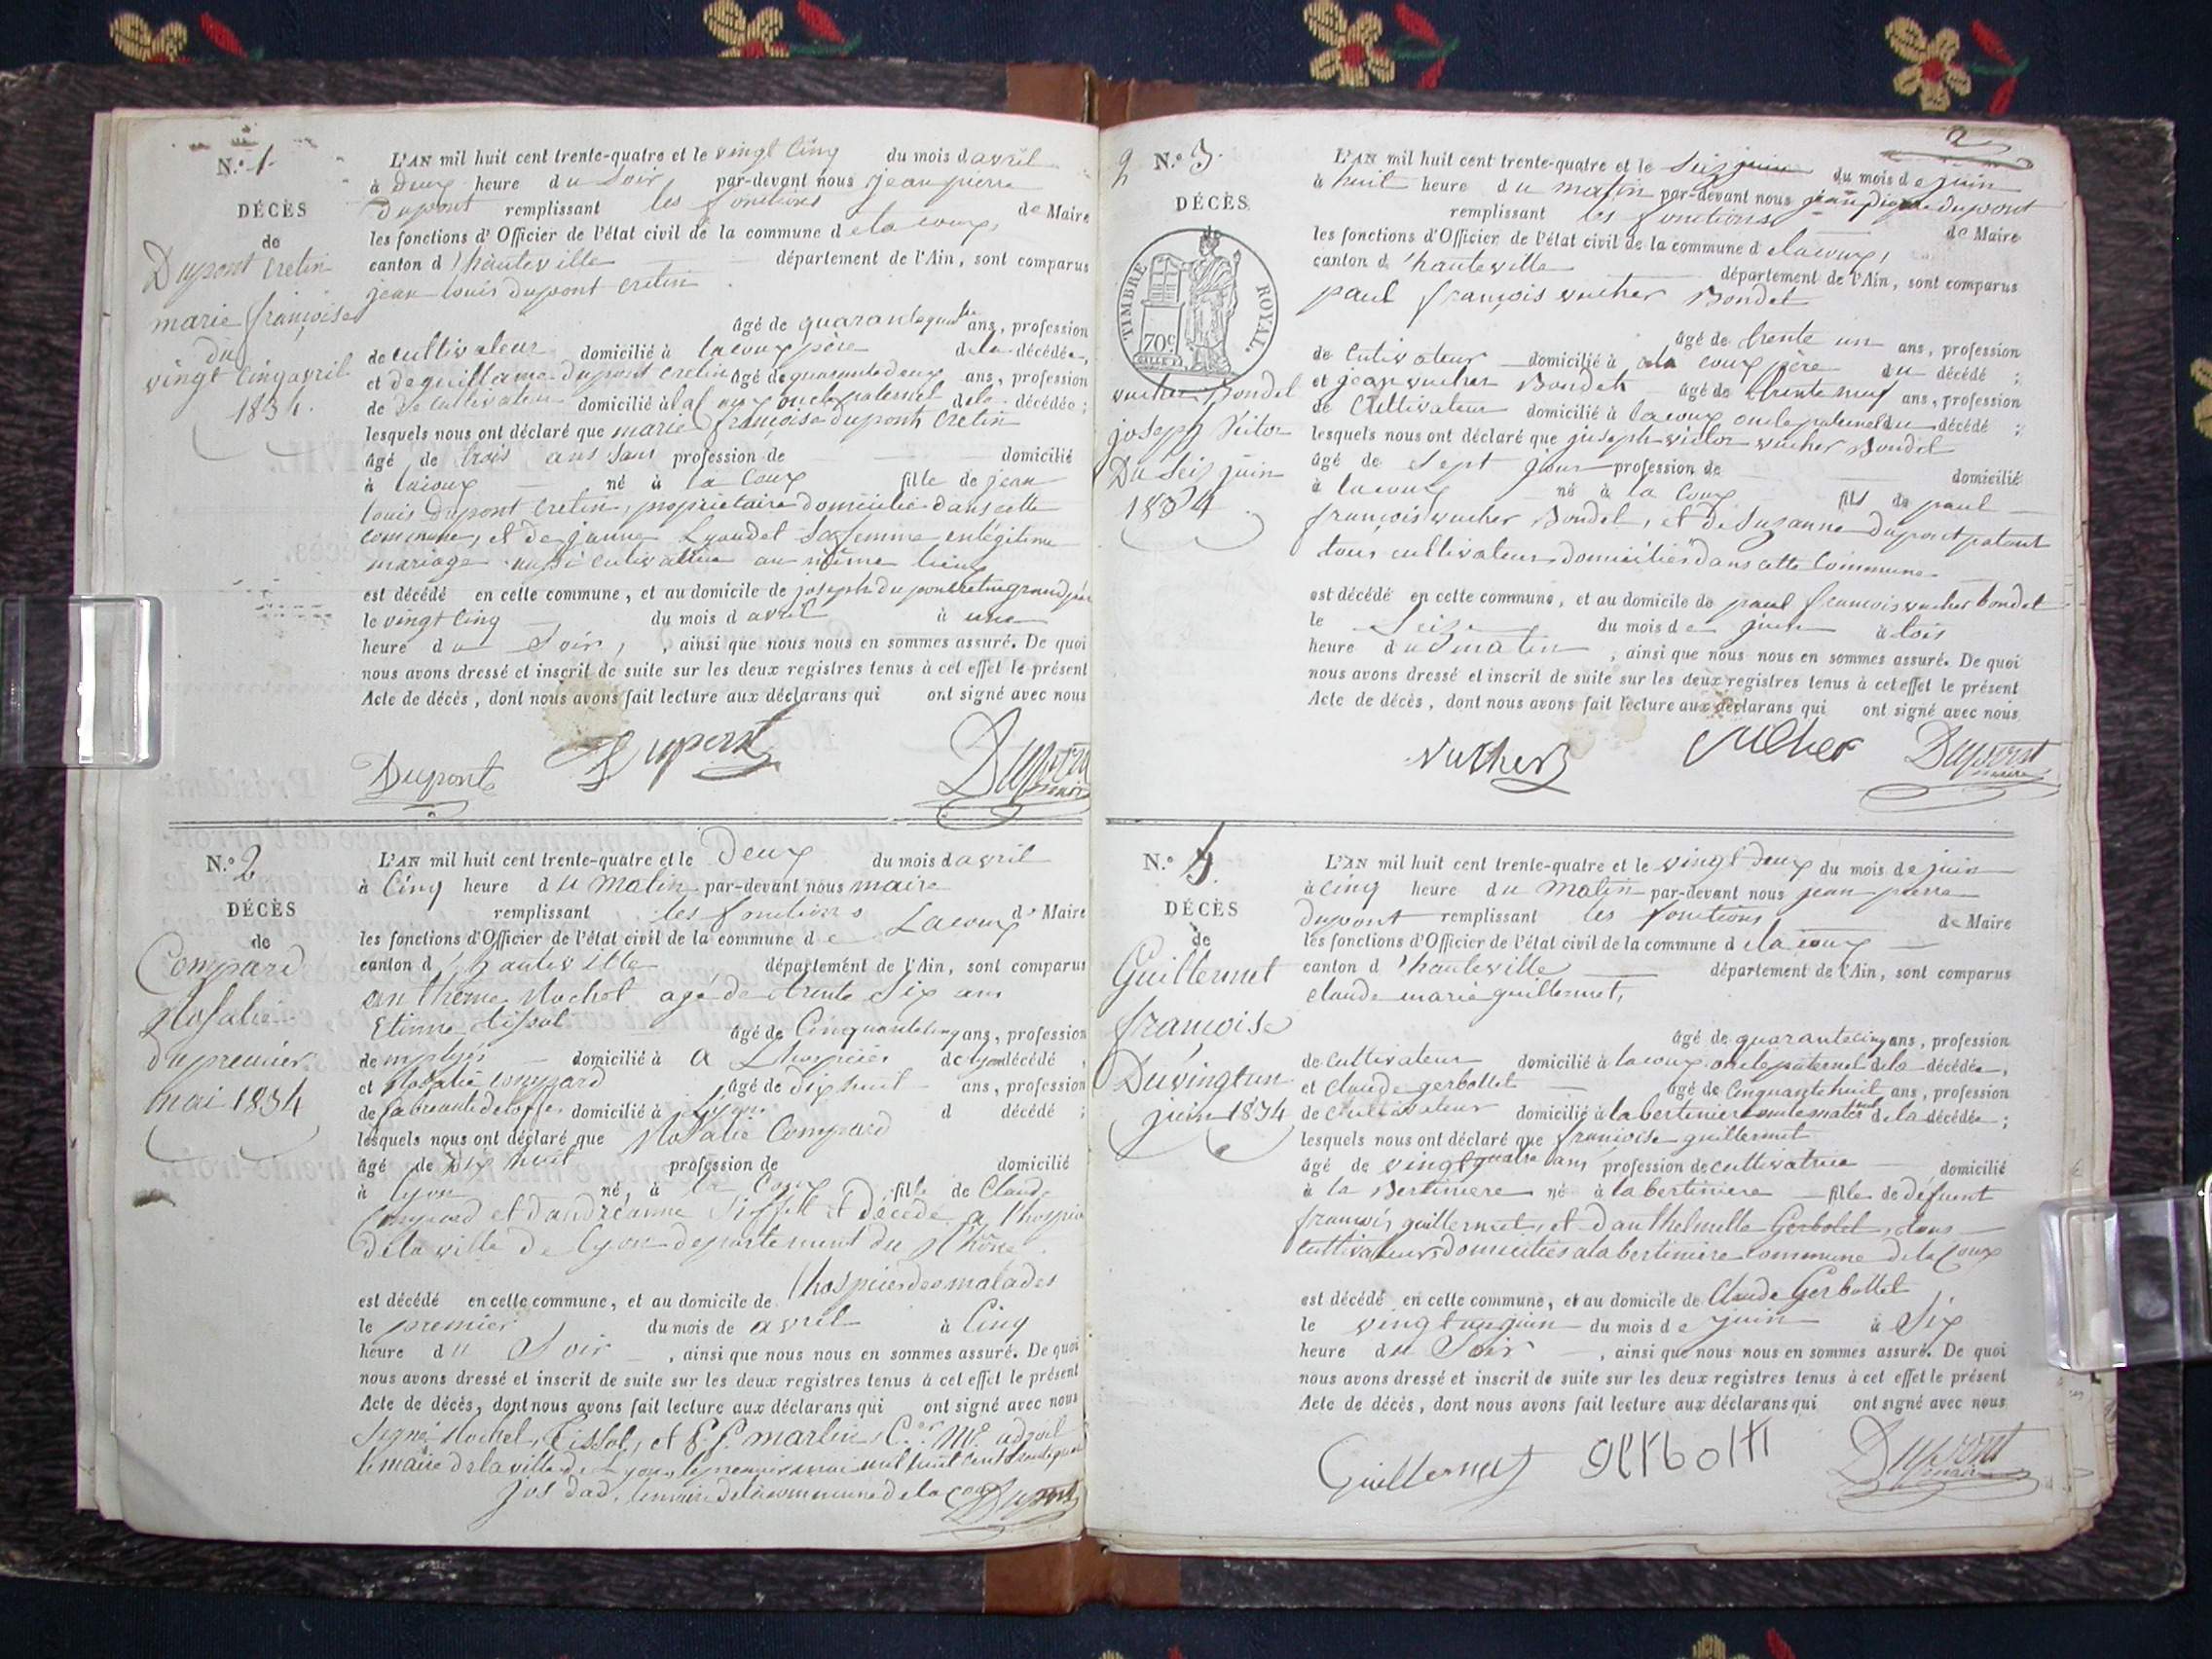 N.º 1
DÉCÈS
de
Dupont Cretin
marie françoise
du
vingt cinq avril
1834.
L'AN mil huit cent trente-quatre et le vingt cinq du mois d avril
à deux heure du soir, par-devant nous jean pierre
dupont remplissant les fonctions de Maire
les fonctions d'Officier de l'état civil de la commune d elacoux,
canton d'hauteville département de l'Ain, sont comparus
jean louis dupont cretin
âgé de quarantequatre ans, profession
de cultivateur domicilié à lacoux père de la décédée,
et de guillaume dupont cretin âgé de quarante deux ans, profession
de de cultivateur domicilié à lacoux oncle paternel dela décédée;
lesquels nous ont déclaré que marie françoise dupont cretin
âgé de trois ans sans profession de domicilié
à lacoux né à la Coux fille de jean
louis dupont cretin, propriétaire domicilié dans cette
commune, et de jeanne Lyaudet sa femme en légitime
mariage aussi cultivatrice au même lieu
est décédé en cette commune, et au domicile de joseph dupont cretin grand père
le vingt cinq du mois d avril à une
heure du Soir, , ainsi que nous nous en sommes assuré. De quoi
nous avons dressé et inscrit de suite sur les deux registres tenus à cet effet le présent
Acte de décès, dont nous avons fait lecture aux déclarans qui ont signé avec nous
Dupont Dupont Dupont
maire
N.º 2
DÉCÈS
de
Compard
Rosalie
du premier
mai 1834
L'AN mil huit cent trente-quatre et le Deux du mois d avril
à Cinq heure du Matin par-devant nous maire
remplissant les fonctions de Maire
les fonctions d'Officier de l'état civil de la commune de Lacoux
canton d'hauteville département de l'Ain, sont comparus
anthème Rochet agé de trente Six ans
Etienne tissot âgé de Cinquante cinq ans, profession
de employés domicilié à a Lhospices de lyon décédé ,
et Rosalie compard âgé de dix huit ans, profession
de domicilié à Lyon d décédé ;
lesquels nous ont déclaré que Rosalie Compard
âgé de Dix huit profession de domicilié
à lyon né, à la Coux fille de Claude
Compard et d'andréanne et décédé a l'hospice
de la ville de Lyon departement du Rhône
est décédé en cette commune, et au domicile de l'hospices des malades
le premier du mois de avril à Cinq
heure du Soir , ainsi que nous nous en sommes assuré. De quoi
nous avons dressé et inscrit de suite sur les deux registres tenus à cet effet le présent
Acte de décès, dont nous avons fait lecture aux déclarans qui ont signé avec nous
Signé Rochet, Tissot, et martin
le maire de la ville de Lyon le premier mai mil huit cent trente quatre
le maire de la commune de la coux Dupont
2
2
N.º 3.
DÉCÈS
de
TIMBRE ROYAL.
70c
vucher Bondet
joseph Victor
Du Seiz juin
1834
L'AN mil huit cent trente-quatre et le Seiz juin du mois de juin
à huit heure du matin par-devant nous jean pierre dupont
remplissant les fonctions de Maire
les fonctions d'Officier de l'état civil de la commune d elacoux,
canton d'hauteville département de l'Ain, sont comparus
paul françois vucher Bondet
âgé de trente un ans, profession
de cutivateur domicilié à la coux père du décédé ;
et jean vucher Bondet âgé de trente neuf ans, profession
de Cultivateur domicilié à lacoux oncle paternel du décédé ;
lesquels nous ont déclaré que joseph victor vucher Bondet
âgé de Sept jour profession de domicilié
à lacoux né à la Coux fils de paul
françois vucher Bondet, et de Suzanne dupont patout
tous cultivateurs domiciliés dans cette Commune
est décédé en cette commune, et au domicile de paul francois vucher bondet
le Seize du mois de juin à tois
heure du matin , ainsi que nous nous en sommes assuré. De quoi
nous avons dressé et inscrit de suite sur les deux registres tenus à cet effet le présent
Acte de décès, dont nous avons fait lecture aux déclarans qui ont signé avec nous
Vucher Vucher Dupont
maire
N.º 4.
DÉCÈS
de
Guillermet
françoise
Du vingt un
juin 1834
L'AN mil huit cent trente-quatre et le vingt deux du mois de juin
à cinq heure du Matin par-devant nous jean pierre
dupont remplissant les fonctions de Maire
les fonctions d'Officier de l'état civil de la commune d elacoux
canton d'hauteville département de l'Ain, sont comparus
claude marie guillermet,
âgé de quarante cinq ans, profession
de cultivateur domicilié à lacoux oncle paternel dela décédée,
et claude gerbottet âgé de cinquante huit ans, profession
de Cultivateur domicilié à labertiniere oncle maternel de la décédée;
lesquels nous ont déclaré que françoise guillermet
âgé de vingt quatre ans profession de cultivatrice domicilié
à la Bertiniere né à labertiniere fille de défeunt
francois guillermet, et d'anthelmette Gerbotet, tous
cultivateurs domiciliés a la bertiniere commune de la Coux
est décédé en cette commune, et au domicile de Claude Gerbottet
le vingt un juin du mois de juin à Six
heure du Soir , ainsi que nous nous en sommes assuré. De quoi
nous avons dressé et inscrit de suite sur les deux registres tenus à cet effet le présent
Acte de décès, dont nous avons fait lecture aux déclarans qui ont signé avec nous
Guillermet Dupont
maire